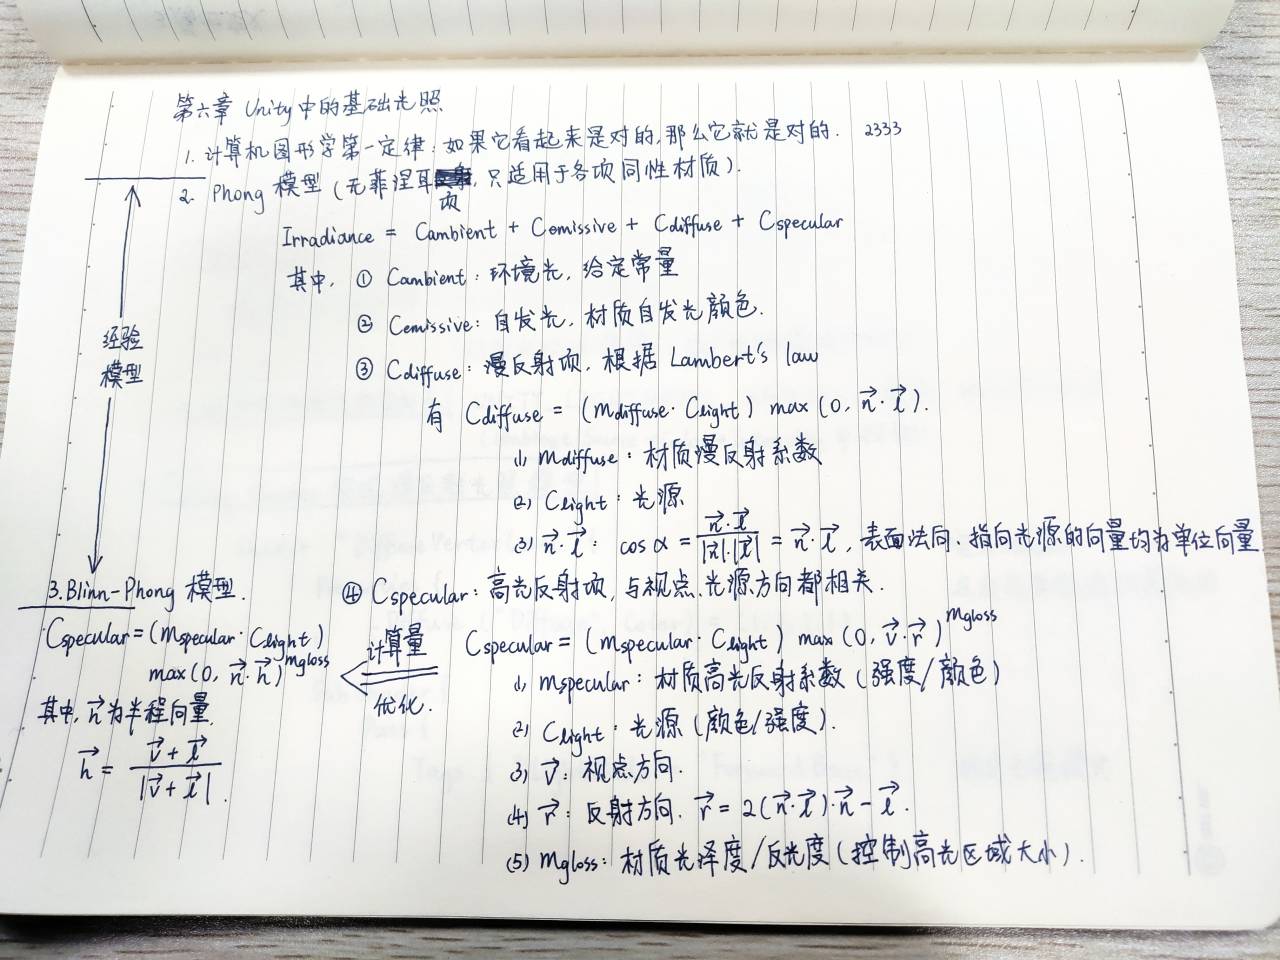 第六章 Unity中的基础光照
1. 计算机图形学第一定律：如果它看起来是对的，那么它就是对的. 2333
2. Phong 模型（无菲涅耳项，只适用于各项同性材质）.
Irradiance = Cambient + Cemissive + Cdiffuse + Cspecular
其中，① Cambient：环境光，给定常量
② Cemissive：自发光，材质自发光颜色.
③ Cdiffuse：漫反射项，根据 Lambert's law
有 Cdiffuse = (mdiffuse · Clight) max(0, n⃗·l⃗).
(1) mdiffuse：材质漫反射系数
(2) Clight：光源
(3) n⃗·l⃗：cosα = n⃗·l⃗ / |n⃗|·|l⃗| = n⃗·l⃗，表面法向、指向光源的向量均为单位向量
④ Cspecular：高光反射项，与视点、光源方向都相关.
Cspecular = (mspecular · Clight) max(0, v⃗·r⃗)^mgloss
(1) mspecular：材质高光反射系数（强度/颜色）
(2) Clight：光源（颜色/强度）.
(3) v⃗：视点方向.
(4) r⃗：反射方向. r⃗ = 2(n⃗·l⃗)·n⃗ - l⃗.
(5) mgloss：材质光泽度/反光度（控制高光区域大小）.
经验
模型
计算量
优化.
3. Blinn-Phong 模型.
Cspecular = (mspecular · Clight)
max(0, n⃗·h⃗)^mgloss
其中，h⃗为半程向量.
h⃗ = v⃗ + l⃗ / |v⃗ + l⃗|.